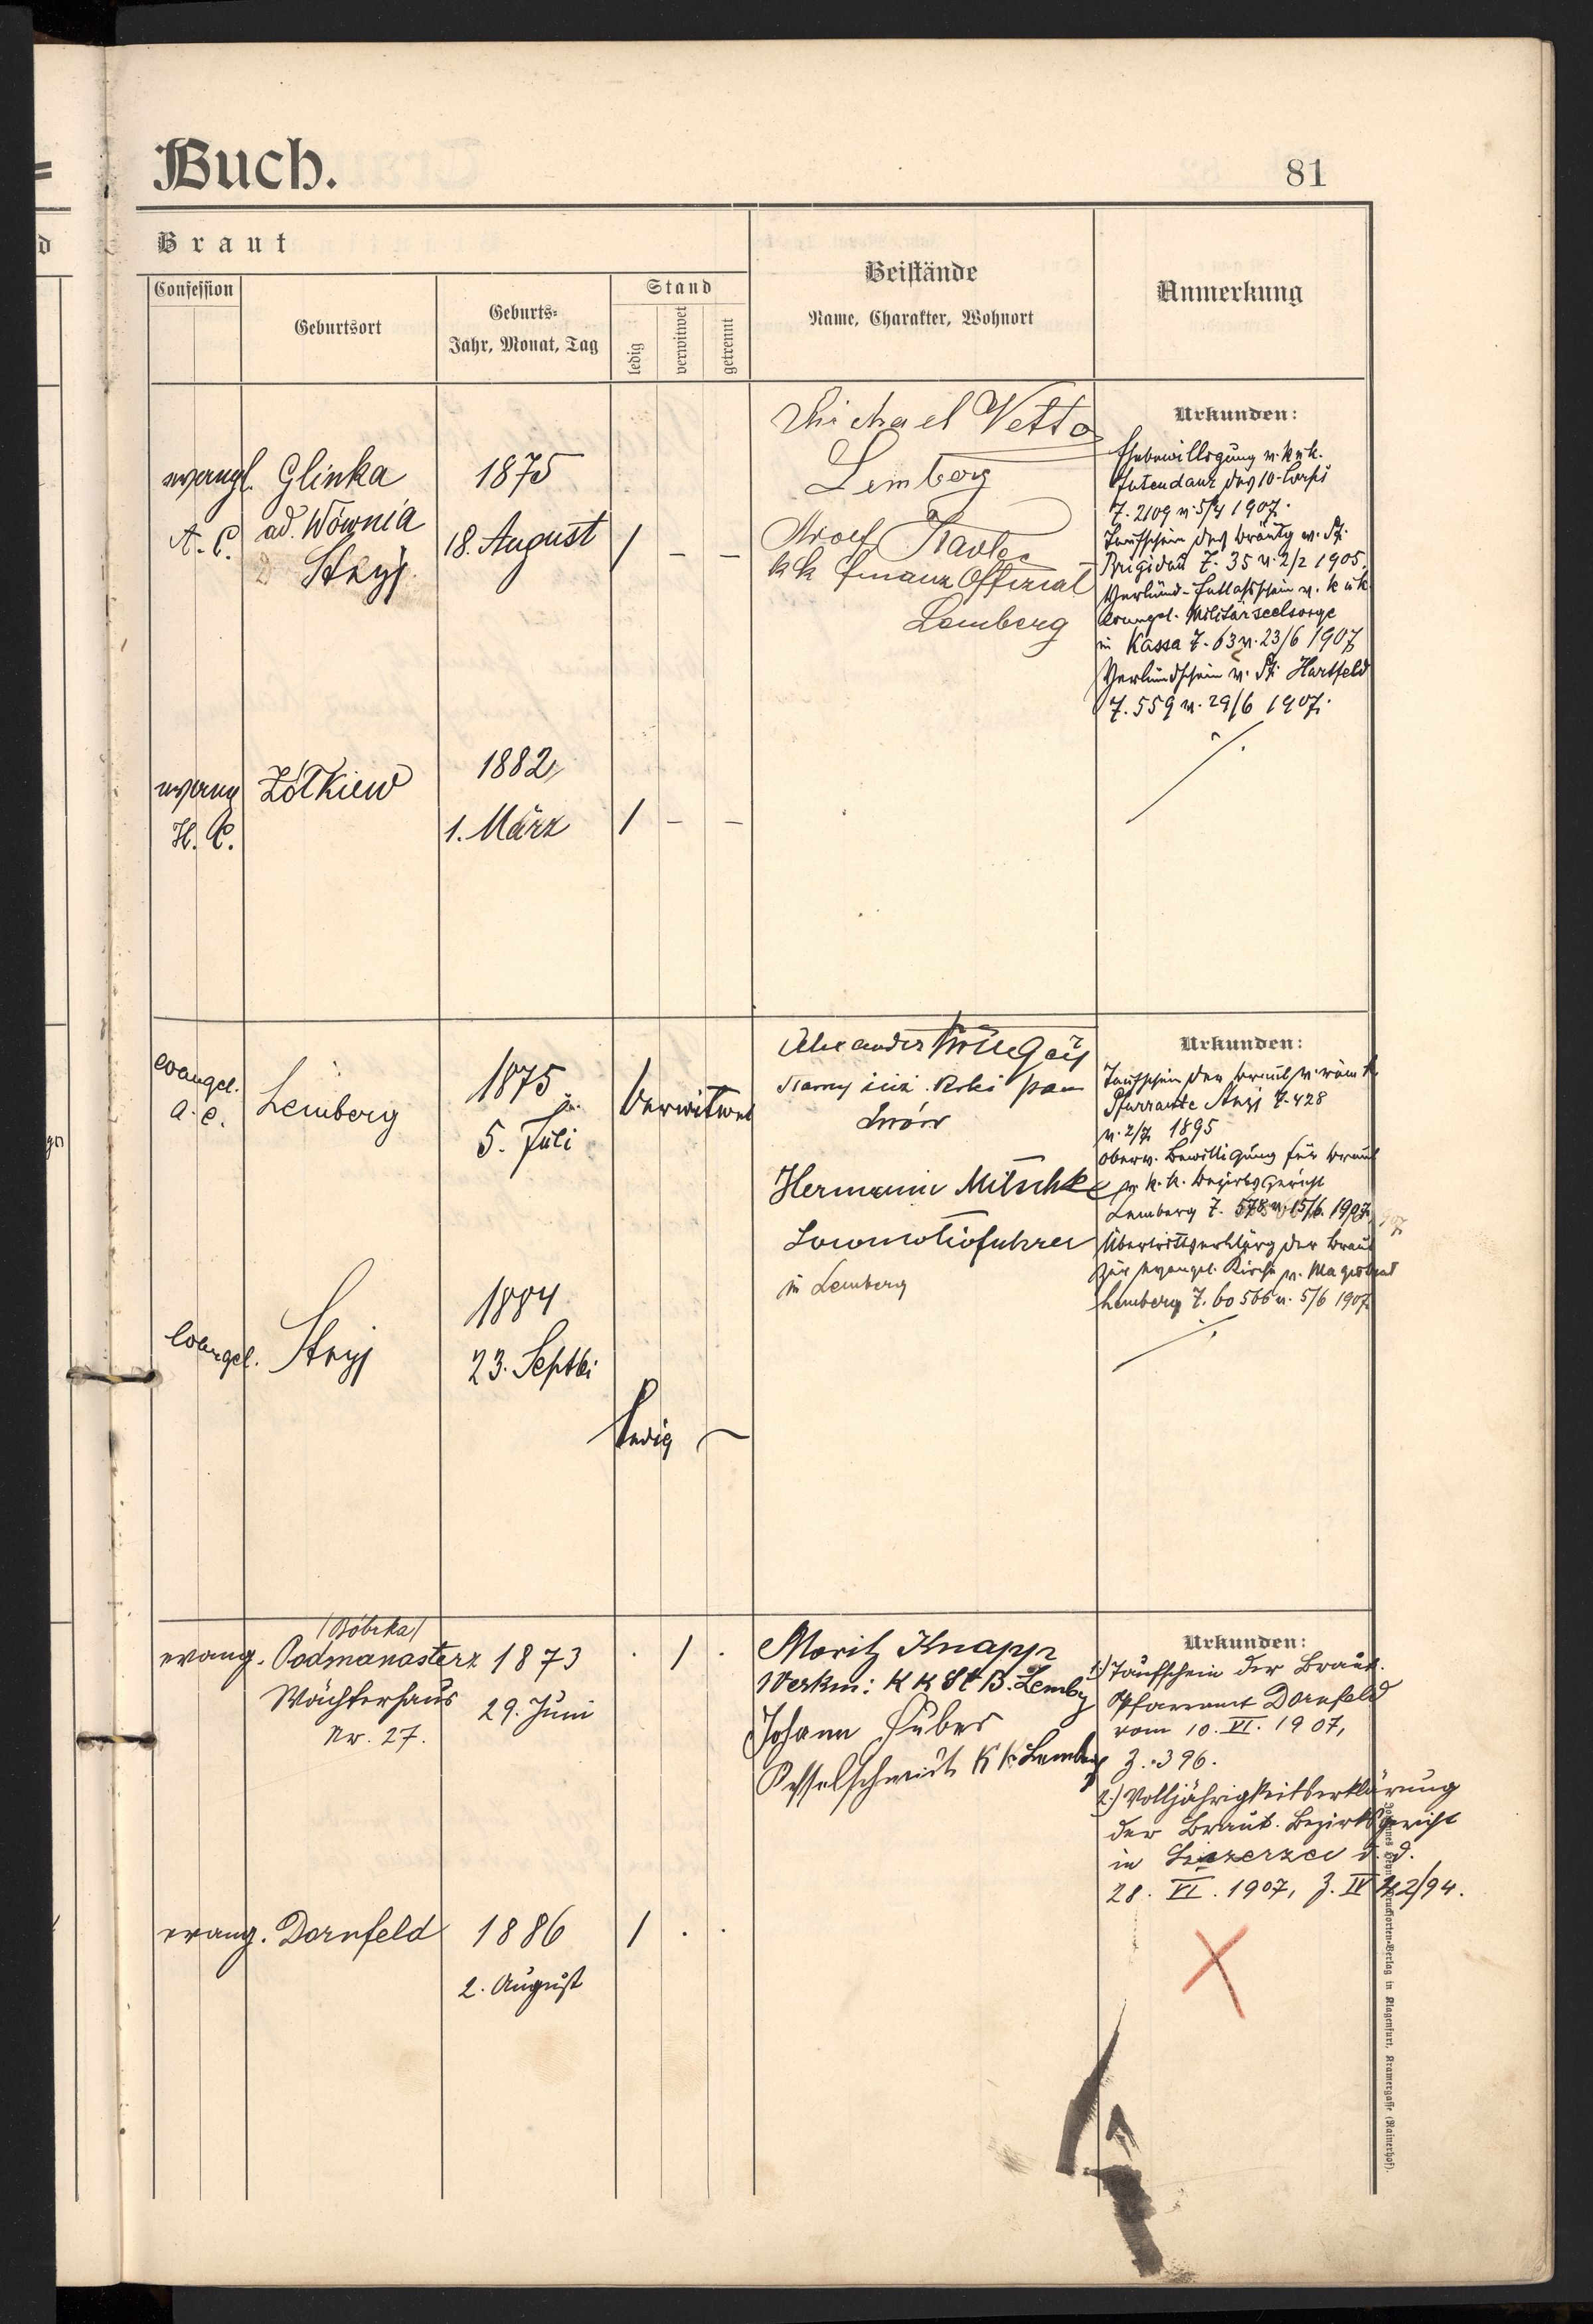 Buch.
81
Braut
Beistände
Name, Charakter, Wohnort
Anmerkung
Confession
Geburtsort
Geburts-
Jahr, Monat, Tag
Stand
ledig
verwitwet
getrennt
Michael Vetto
Lemberg
Adolf
kk Finanz Offizial
Lemberg
evangl.
A. C.
Glinka
ad. Wównia
Stryj.
1875
18. August
/ - -
Urkunden:
Ehebewilligung v. k u k.
Intendanz des 10-Corps
Z. 2109 v. 5/4 1907.
Taufschein des Bräutg v. Pfr.
Brigidau Z. 35 v. 2/2 1905.
Verkünd-Entlaßschein v. k u k.
evangel. Militärseelsorge
in Kassa Z. 63 v. 23/6 1907
Verkündschein v. Pfr. Hartfeld
Z. 559 v. 29/6 1907.
evang
H. C.
Żółkiew
1882
1. März
/ - -
evangel.
a. c.
Lemberg
1875
5. Juli
Verwitwet
Alexander
Lwów
Hermann Mitschke
Locomotivführer
in Lemberg
Urkunden:
Taufschein der Braut v. röm k.
Pfarramte Stryj Z. 428
v. 2/7 1895
oberv. Bewilligung für Braut
v. k. k. Bezirksgericht
Lemberg Z. 578 v. 15/6. 1907
Übertrittserklärg der Braut
zur evangel. Kirche v. Magistrat
Lemberg Z. 60 566 v. 5/6 1907.
evangel.
Stryj
1884
23. Septbi
ledig
/Bóbrka/
evang.
Podmanasterz
Wächterhaus
Nr. 27.
1873
29. Juni
. / .
Moritz Knapp
Werkm: K K St B. Lembg
Johann Huber
Kesselschmidt K k Lemberg
Urkunden:
1.) Taufschein der Braut.
Pfarramt Dornfeld
vom 10. VI. 1907,
Z. 396.
2.) Volljährigkeitserklärung
der Braut. Bezirksgericht
in Szczerzec d. d.
28. VI. 1907, Z. IV 22/94.
evang.
Dornfeld
1886
2. August
/ . .
Verlag in Klagenfurt, Kramergasse (Rainerhof).